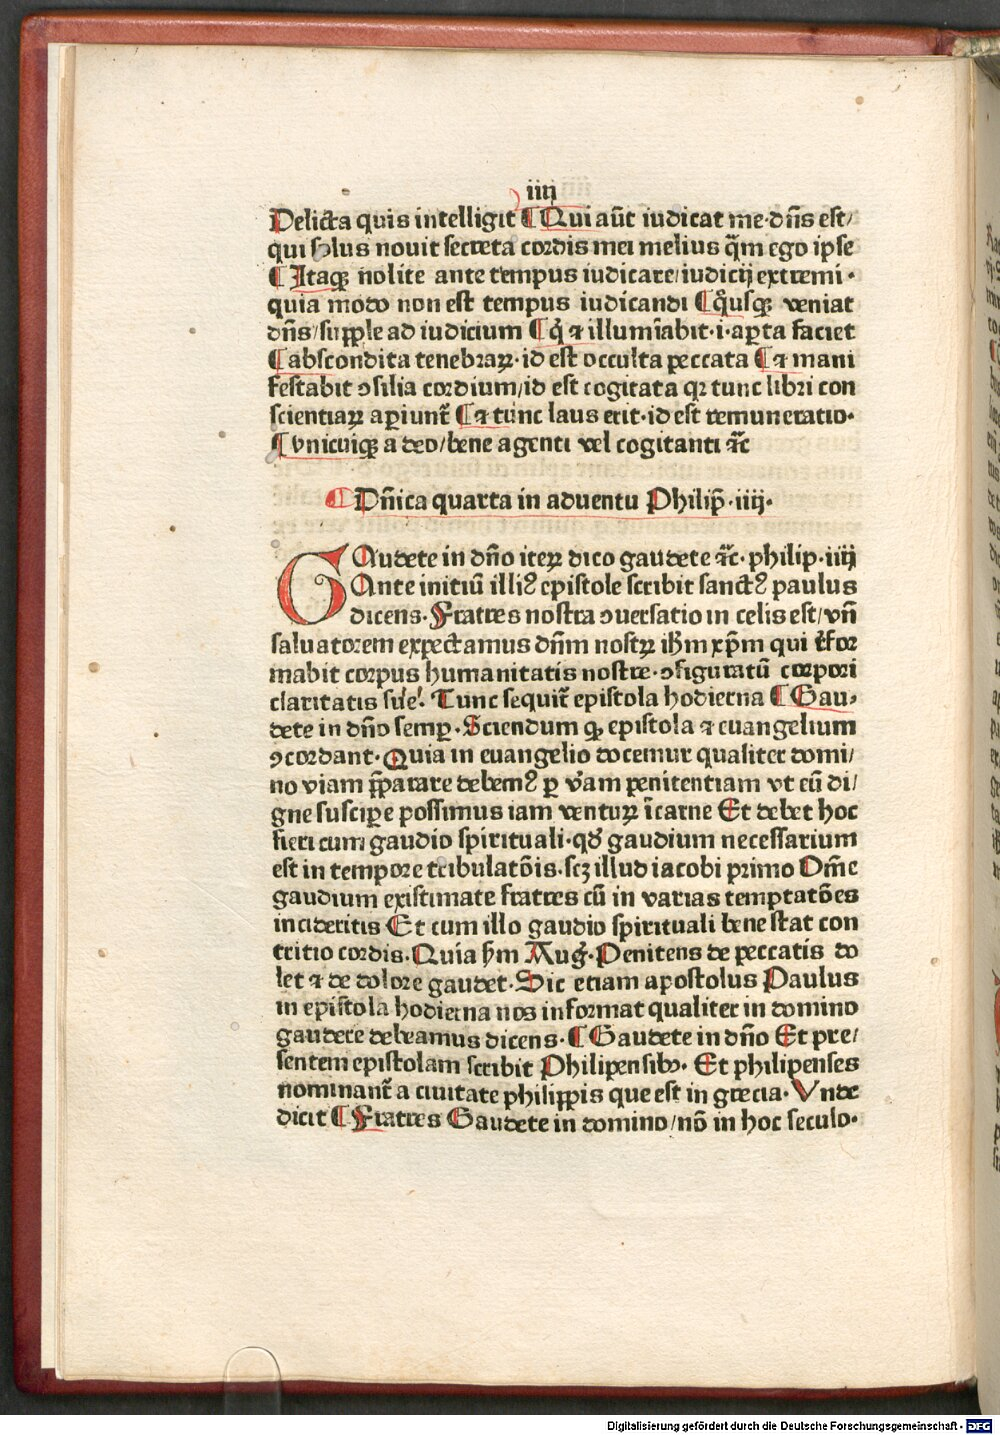 iiij
Delicta quis intelligit ¶ Qui aūt iudicat me·dñs est/
qui solus nouit secreta cordis mei melius q̃m ego ipse
¶ Itaqꝫ nolite ante tempus iudicare/iudicij extremi·
quia modo non est tempus iudicandi ¶ q̊usqꝫ veniat
dñs/supple ad iudicium ¶ q̇ ⁊ illumīabit·i·aꝑta faciet
¶ abscondita tenebraꝝ·id est occulta peccata ¶ ⁊ mani
festabit ꝯsilia cordium/id est cogitata qꝛ tunc libri con
scientiaꝝ aꝑiunt᷑ ¶ ⁊ tunc laus erit·id est remuneratio·
¶ vnicuiqꝫ a deo/bene agenti vel cogitanti ⁊̄c
¶ Dñica quarta in aduentu Philip̄·iiij·
GAudete in dño iteꝝ dico gaudete ⁊̄c·philip·iiij
Ante initiū illiꝰ epistole scribit sanctꝰ paulus
dicens·Fratres nostra ꝯuersatio in celis est/vñ
saluatorem expectamus dñm nostꝝ ihm̄ xp̄m qui refor
mabit corpus humanitatis nostre·ꝯfiguratū corpori
claritatis sue. Tunc sequit᷑ epistola hodierna ¶ Gau⸗
dete in dño semꝑ·Sciendum ꝙ epistola ⁊ euangelium
ꝯcordant·Quia in euangelio docemur qualiter domi/
no viam p̄parare debemꝰ ꝑ v̄am penitentiam vt eū di/
gne susciꝑe possimus iam ventuꝝ ī carne Et debet hoc
fieri cum gaudio spirituali·qđ gaudium necessarium
est in tempore tribulatōis·scꝫ illud iacobi primo Om̄e
gaudium existimate fratres cū in varias temptatōes
incideritis Et cum illo gaudio spirituali bene stat con
tritio cordis·Quia hm̄ Aug̃·Penitens de peccatis do
let ⁊ de dolore gaudet·Sic etiam apostolus Paulus
in epistola hodierna nos informat qualiter in domino
gaudere debeamus dicens·¶ Gaudete in dño Et pre/
sentem epistolam scribit Philipensibꝰ·Et philipenses
nominant᷑ a ciuitate philippis que est in grecia·Vnde
dicit ¶ Fratres Gaudete in domino/nō in hoc seculo·
Digitalisierung gefördert durch die Deutsche Forschungsgemeinschaft - DFG